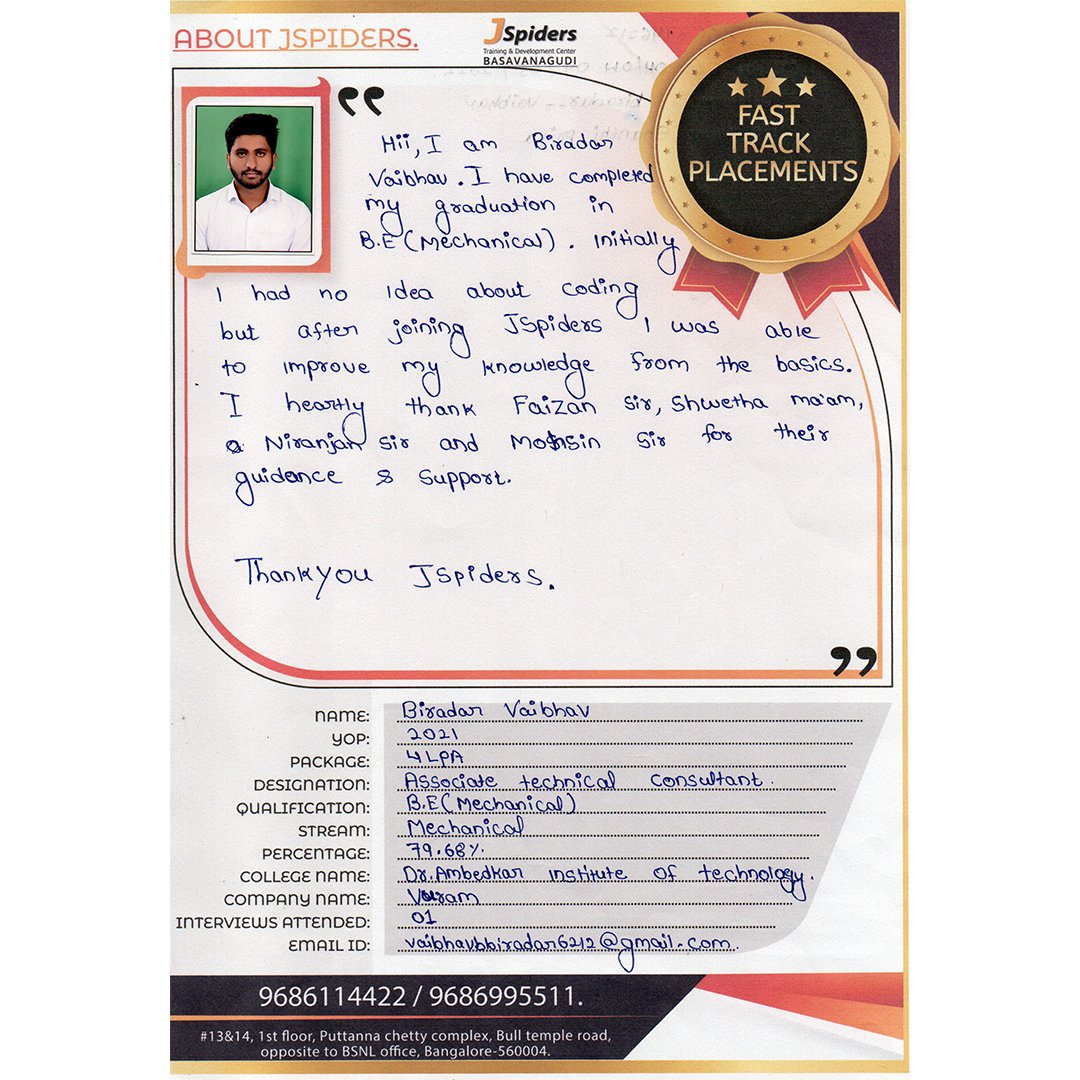 ABOUT JSPIDERS.
JSpiders
Training & Development Center
BASAVANAGUDI
FAST
TRACK
PLACEMENTS
Hii, I am Biradar
Vaibhav. I have completed
my graduation in
B.E (Mechanical). initially
I had no idea about coding
but after joining JSpiders I was able
to improve my knowledge from the basics.
I heartly thank Faizan sir, Shwetha ma'am,
Niranjan sir and Mohsin sir for their
guidance & support.
Thankyou JSpiders.
NAME: Biradar Vaibhav
YOP: 2021
PACKAGE: 4 LPA
DESIGNATION: Associate technical consultant.
QUALIFICATION: B.E (Mechanical)
STREAM: Mechanical
PERCENTAGE: 79.68%.
COLLEGE NAME: Dr. Ambedkar institute of technology.
COMPANY NAME:
INTERVIEWS ATTENDED: 01
EMAIL ID: vaibhavbbiradar6212@gmail.com.
9686114422 / 9686995511.
#13&14, 1st floor, Puttanna chetty complex, Bull temple road,
opposite to BSNL office, Bangalore-560004.